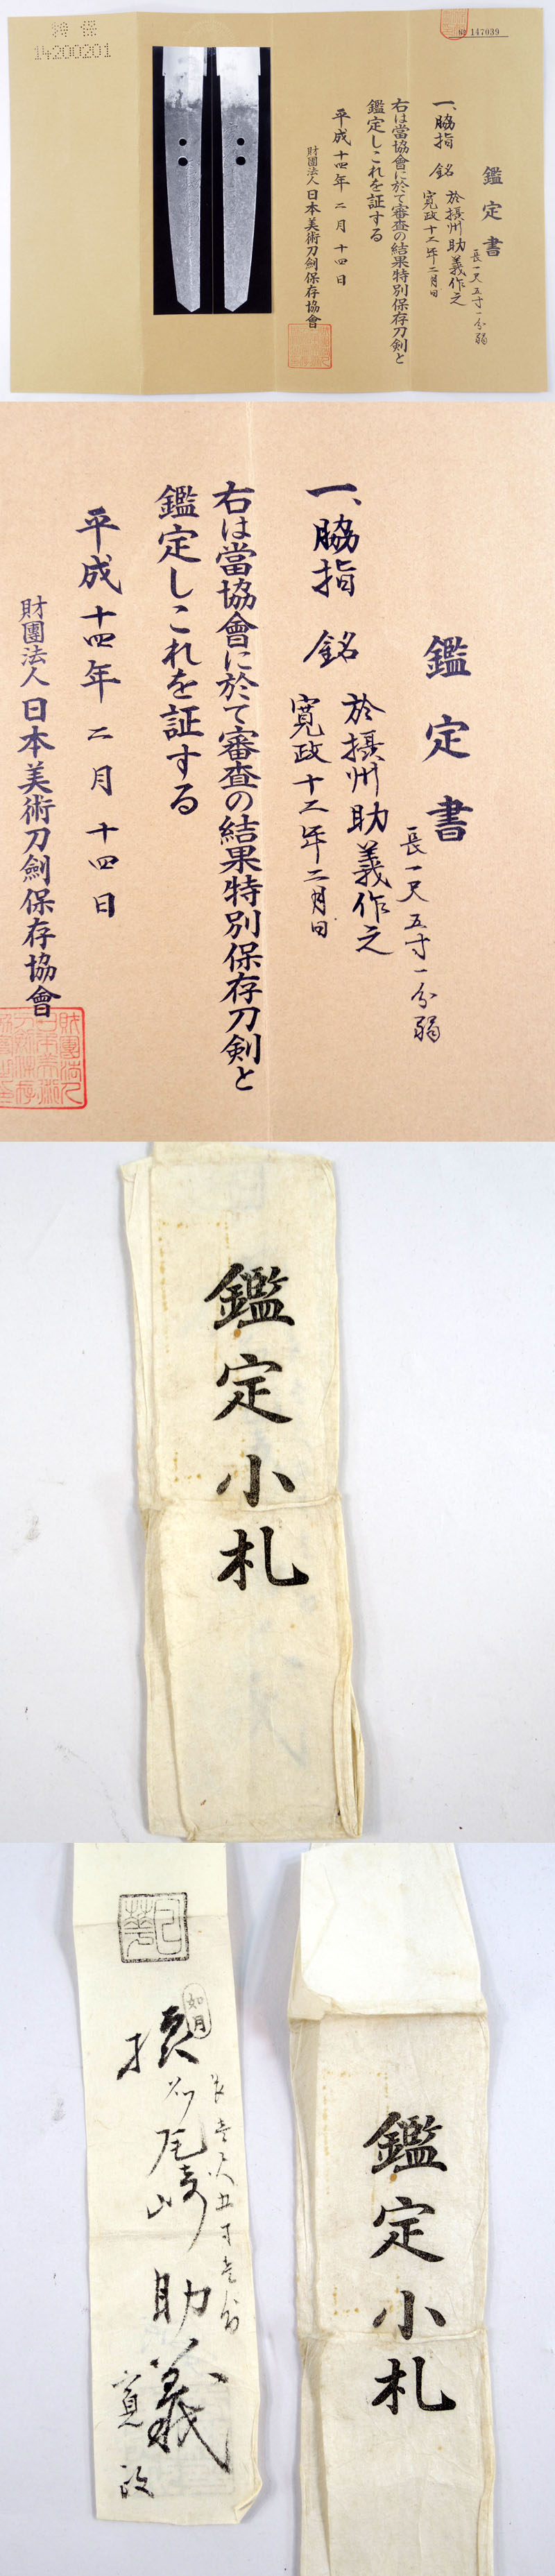 特保
14200201
147039
鑑定書
長一尺五寸一分弱
一、脇指 銘 於摂州助義作之
寛政十二年二月日
右は當協會に於て審査の結果特別保存刀剣と
鑑定しこれを証する
平成十四年二月十四日
財團法人日本美術刀劍保存協會
鑑定書
長一尺五寸一分弱
一、脇指 銘 於摂州助義作之
寛政十二年二月日
右は當協會に於て審査の結果特別保存刀剣と
鑑定しこれを証する
平成十四年二月十四日
財團法人日本美術刀劍保存協會
鑑定小札
如月
長壱尺五寸壱分
摂州尾崎助義
寛政
鑑定小札